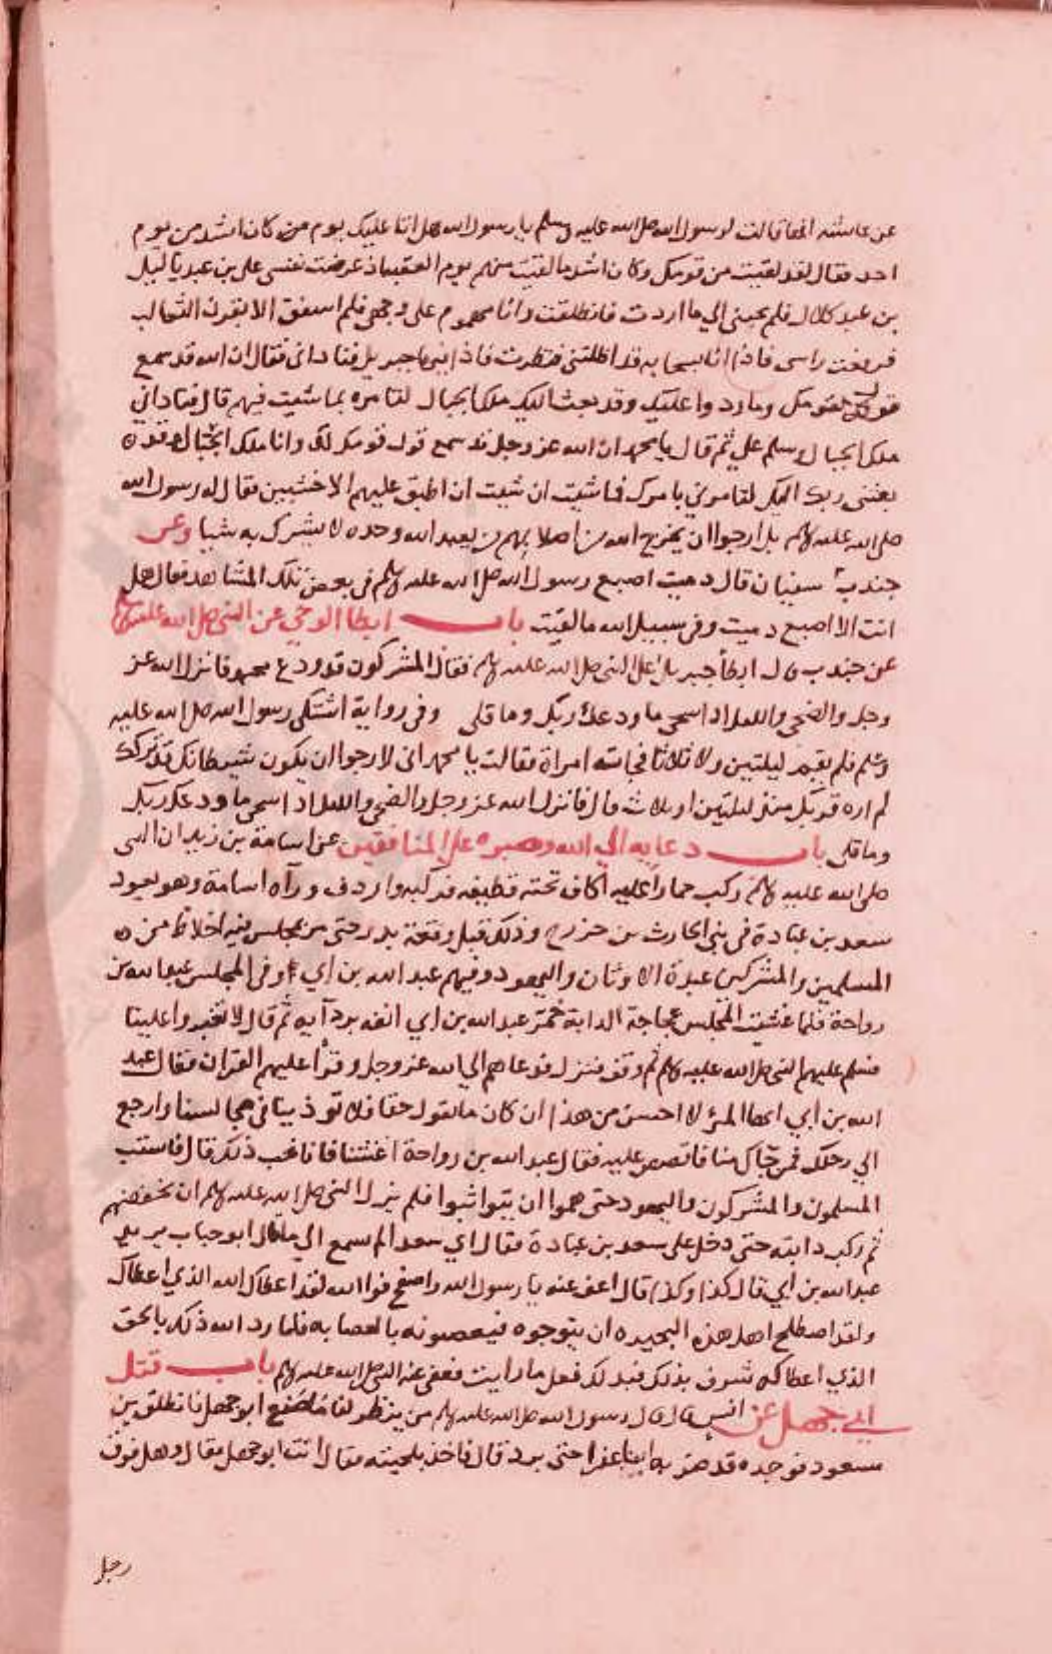 عن عائشه انها قالت لرسول الله صلى الله عليه وسلم يا رسول الله هل اتا عليك يوم من كان اشد من يوم
احد فقال لقد لقيت من قومك وكان اشد ما لقيت منهم يوم العقبة اذ عرضت نفسي على بن عبد ياليل
بن عبد كلال فلم يجبني الي ما اردت فانطلقت وانا مهموم على وجهي فلم استفق الا بقرن الثعالب
فرفعت راسي فاذا انا بسحابه قد اظلتني فنظرت فاذا فيها جبريل فناداني فقال ان الله قد سمع
قول قومك وما ردوا عليك وقد بعث اليك ملك الجبال لتامره بما شيت فيهم قال فناداني
ملك الجبال وسلم علي ثم قال يا محمد ان الله عز وجل قد سمع قول قومك لك وانا ملك الجبال وقد
بعثني ربك اليك لتامرني بامرك فما شيت ان شيت ان اطبق عليهم الاخشبين فقال له رسول الله
صلى الله عليه وسلم بل ارجوا ان يخرج الله من اصلابهم من يعبد الله وحده لا يشرك به شيا وعن
جندب بن سفيان قال دميت اصبع رسول الله صلى الله عليه وسلم في بعض تلك المشاهد فقال هل
انت الا اصبع دميت وفي سبيل الله ما لقيت باب ابطا الوحي عن النبي صلى الله عليه وسلم
عن جندب قال ابطأ جبريل على النبي صلى الله عليه وسلم فقال المشركون قد ودع محمد فانزل الله عز
وجل والضحى والليل اذا سجى ما ودعك ربك وما قلى وفي رواية اشتكى رسول الله صلى الله عليه
وسلم فلم يقم ليلتين ولا ثلاثا فجاته امراة فقالت يا محمد اني لارجوا ان يكون شيطانك قد تركك
لم اره قربك منذ ليلتين او ثلاث قال فانزل الله عز وجل والضحى والليل اذا سجى ما ودعك ربك
وما قلى باب دعايه الي الله وصبره على المنافقين عن اسامة بن زيد ان النبي
صلى الله عليه وسلم ركب حمارا عليه اكاف تحته قطيفه فدكيه واردف وراه اسامة وهو يعود
سعد بن عبادة في بني الحارث بن خزرج وذلك قبل وقعة بدر حتى مر بمجلس فيه اخلاط من
المسلمين والمشركين عبدة الاوثان واليهود وفيهم عبد الله بن ابي وفي المجلس عبد الله بن
رواحة فلما غشيت المجلس عجاجة الدابة خمر عبد الله بن ابي انفه بردايه ثم قال لا تغبروا علينا
فسلم عليهم النبي صلى الله عليه وسلم ثم وقف فنزل فدعاهم الي الله عز وجل وقرأ عليهم القران فقال عبد
الله بن ابي ايها المرؤ لا احسن من هذا ان كان ما تقول حقا فلا توذينا في مجالسنا وارجع
الي رحلك فمن جآك منا فاقصص عليه فقال عبد الله بن رواحة اغشنا فانا نحب ذلك قال فاستب
المسلمون والمشركون واليهود حتى هموا ان يتواثبوا فلم يزل النبي صلى الله عليه وسلم يخفضهم
ثم ركب دابته حتى دخل على سعد بن عبادة فقال اي سعد الم تسمع الي ما قال ابو حباب يريد
عبد الله بن ابي قال كذا وكذا قال اعف عنه يا رسول الله واصفح فوالله لقد اعطاك الله الذي اعطاك
ولقد اصطلح اهل هذه البحيره ان يتوجوه فيعصبونه بالعصابه فلما رد الله ذلك بالحق
الذي اعطاكه شرق بذلك فبذلك فعل ما رايت فعفى عنه النبي صلى الله عليه وسلم باب قتل
ابي جهل عن انس قال قال رسول الله صلى الله عليه وسلم من ينظر لنا ما صنع ابو جهل فانطلق بن
مسعود فوجده قد ضربه ابنا عفرا حتى برد قال فاخذ بلحيته فقال انت ابو جهل فقال وهل فوق
رجل